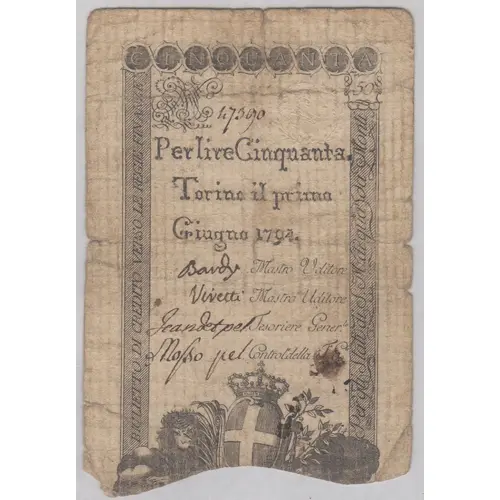 CINQUANTA
N 17590
50
Per lire Cinquanta.
Torino il primo
Giugno 1794.
Mastro Uditore
Vivetti Mastro Uditore
pel Tesoriere Gener.
Mosso pel Control. della
BILIETTO DI CREDITO VERSO LE REGIE FINANZE